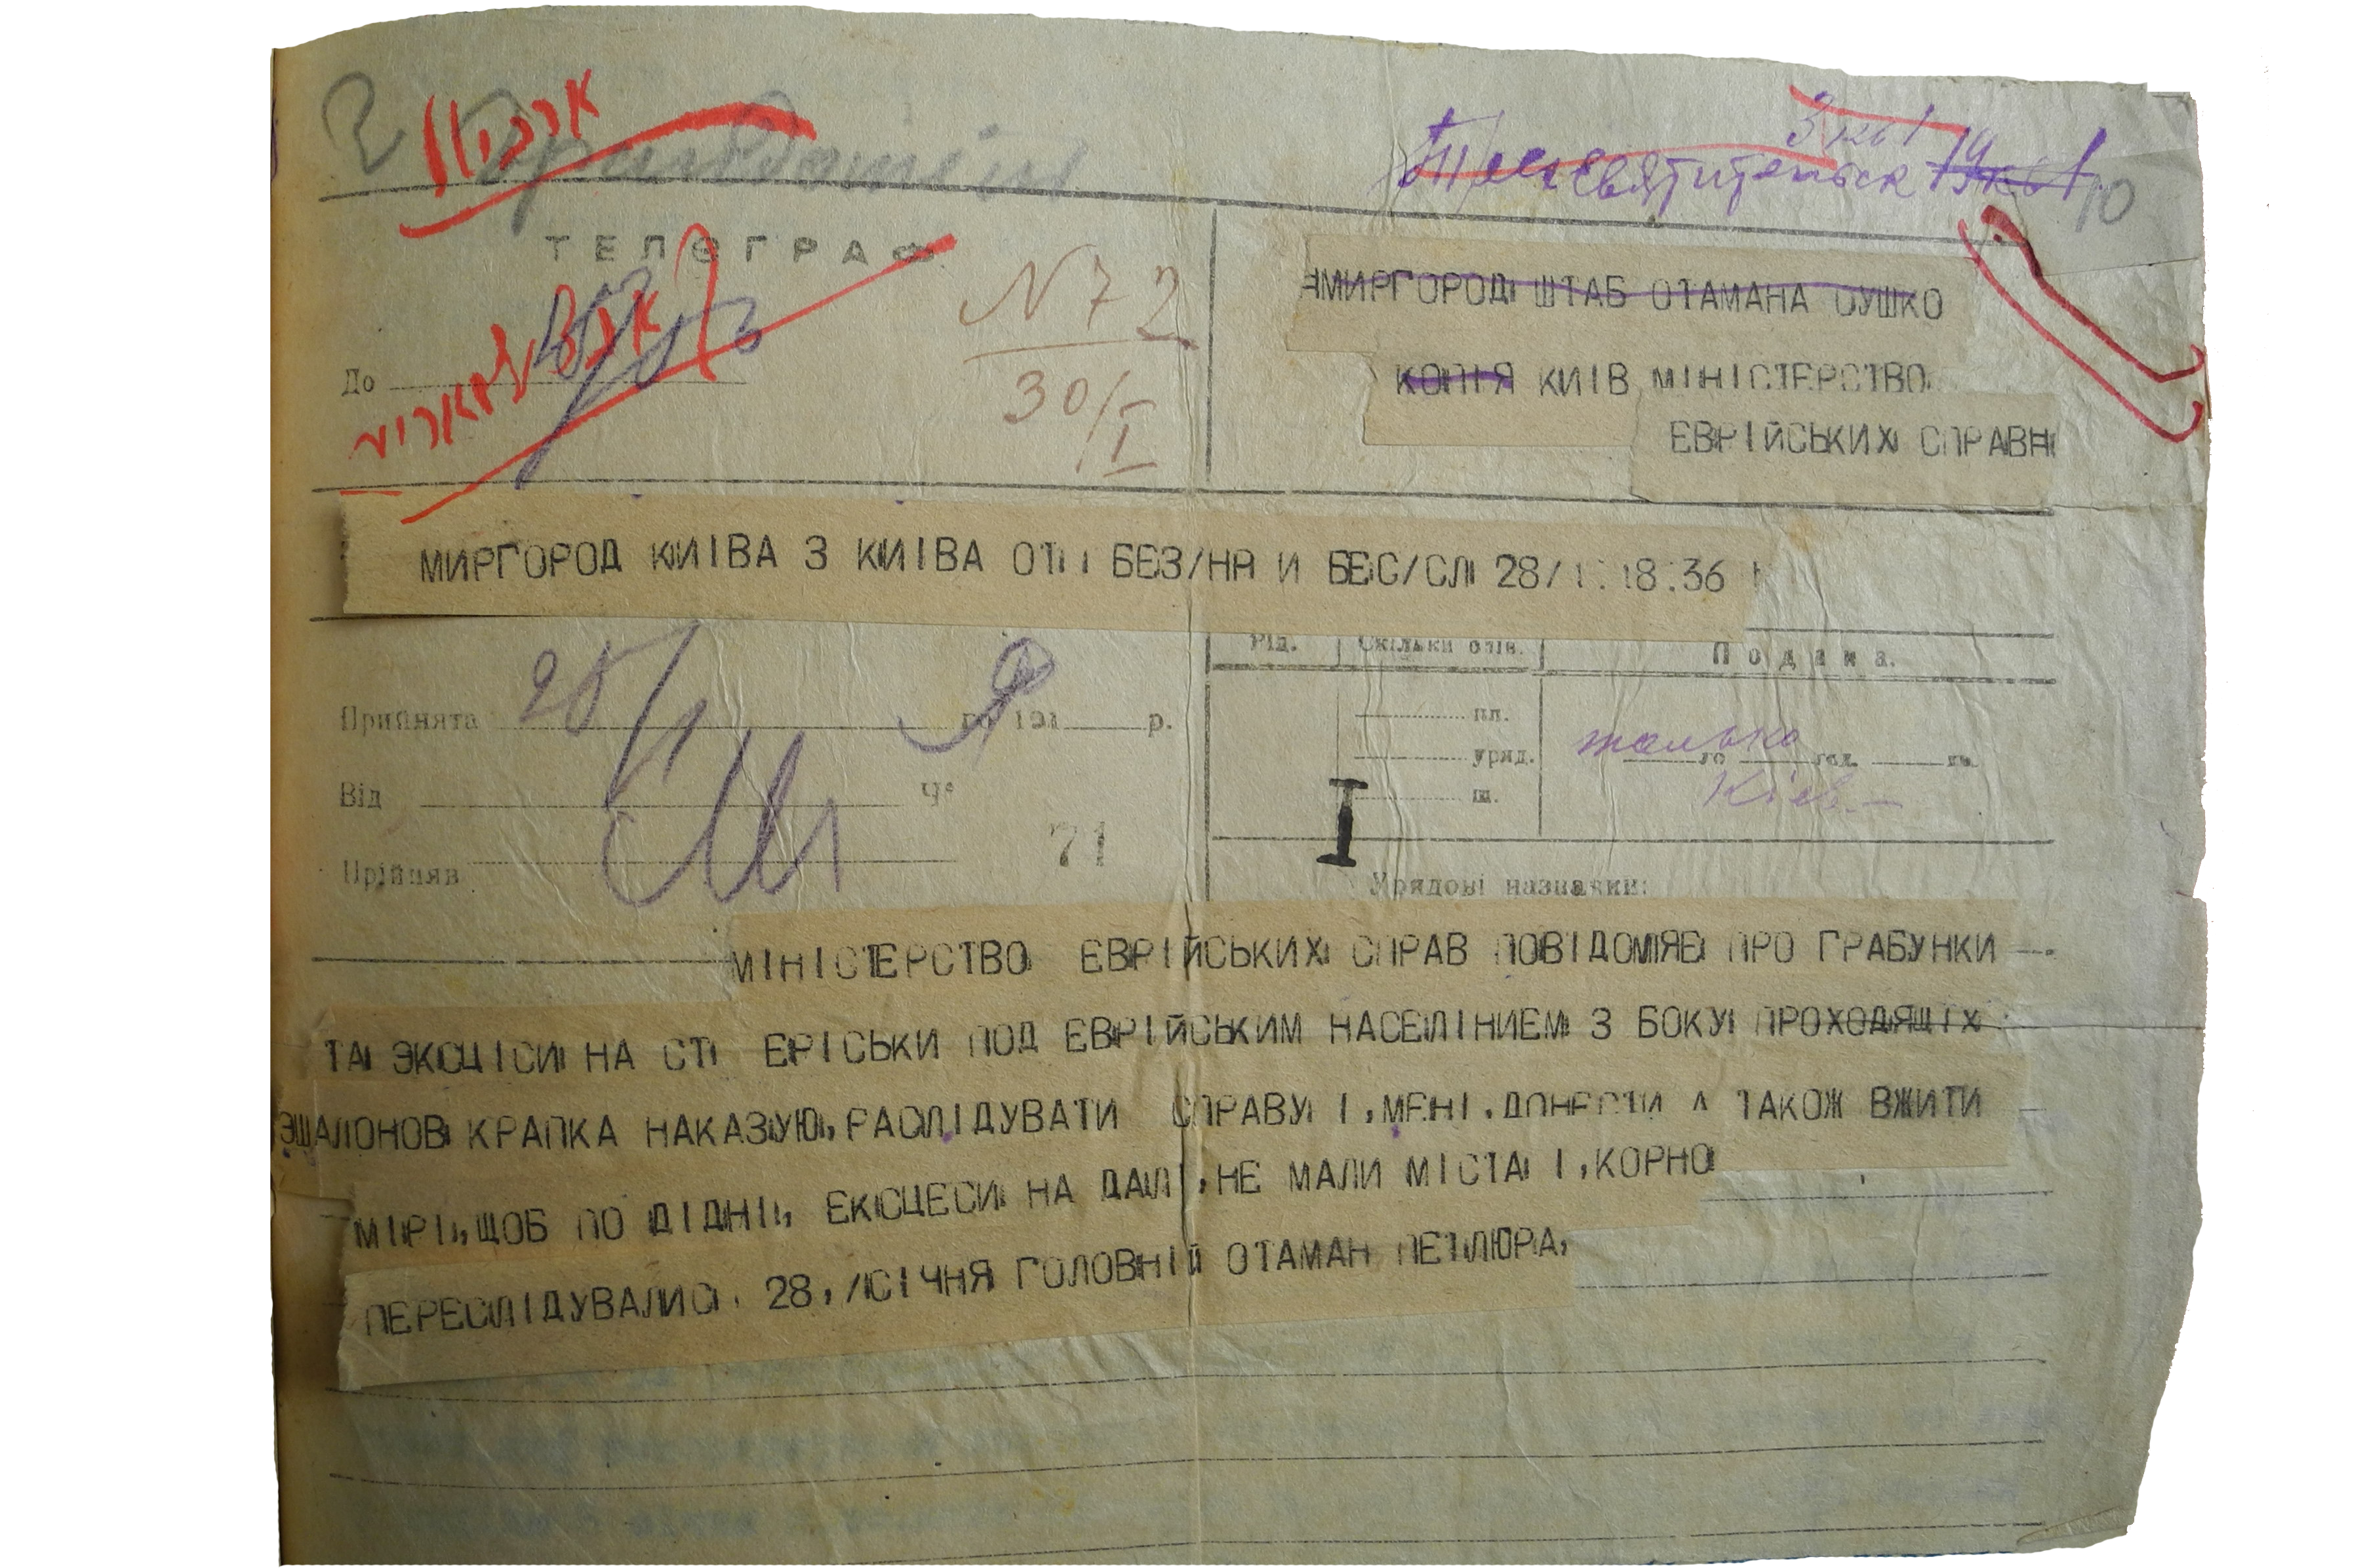 ТЕЛЕГРАФ
До
N 72
30/I
10
МИРГОРОД ШТАБ ОТАМАНА ОУШКО
КОПІЯ КИІВ МІНІСТЕРСТВО
ЕВРІЙСЬКИХ СПРАВ
МИРГОРОД КИІВА З КИІВА ОТ БЕЗ/НР И БЕС/СЛ 28/1 18.36
Рід. Скільки слів. Подана.
Прийнята 28/1 го 191 р.
Від Ч°
Прійняв
71
пл.
уряд.
ш.
только го год. хв.
Кіев
I
Урядові назначки:
МІНІСТЕРСТВО ЕВРІЙСЬКИХ СПРАВ ПОВІДОМЯЕ ПРО ГРАБУНКИ
ТА ЭКСЦІСИ НА СТ ЕРІСЬКИ ПОД ЕВРІЙСЬКИМ НАСЕЛІНИЕМ З БОКУ ПРОХОДЯЩІХ
ЭШАЛОНОВ КРАПКА НАКАЗУЮ, РАСЛІДУВАТИ СПРАВУ І, МЕНІ. ДОНЕСТИ А ТАКОЖ ВЖИТИ
МІРІ, ЩОБ ПО ДІДНІ, ЕКСЦЕСИ НА ДАЛІ, НЕ МАЛИ МІСТА І, КОРНО
ПЕРЕСЛІДУВАЛИС. 28,/СІЧНЯ ГОЛОВНІЙ ОТАМАН ПЕТЛЮРА,